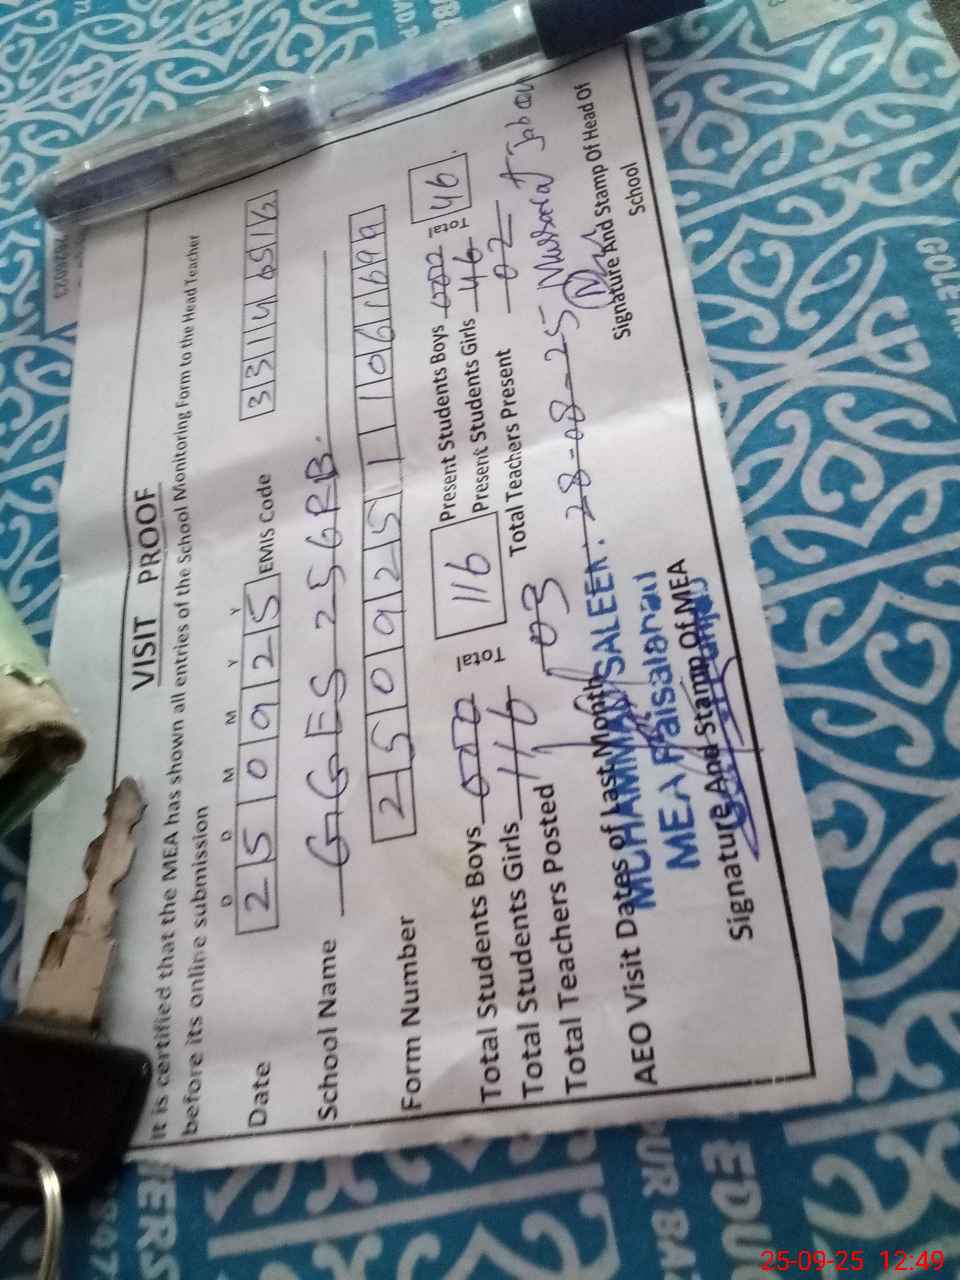 VISIT PROOF
It is certified that the MEA has shown all entries of the School Monitoring Form to the Head Teacher
before its online submission
D D M M Y Y
Date 250925 EMIS Code 33146512
School Name GGES 256RB.
Form Number 2509251106
Total Students Boys 000 Total 116 Present Students Boys 000 Total 46
Total Students Girls 116 Present Students Girls 46
Total Teachers Posted 03 Total Teachers Present 02
AEO Visit Dates of Last Month 28-08-25
MUHAMMAD SALEEM
MEA Faisalabad
Signature And Stamp Of MEA
Signature And Stamp Of Head Of
School
25-09-25 12:49